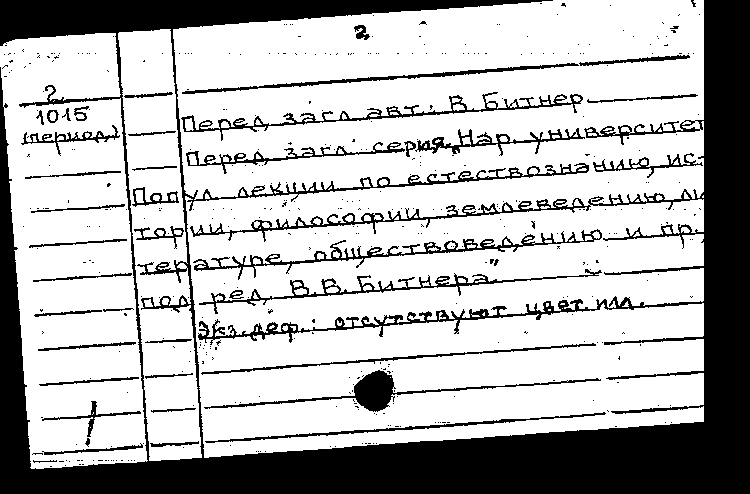 2
2
1015
(период.)
Перед загл. авт.: В. Битнер.
Перед загл. серия „Нар. университет
Попул лекции по естествознанию, ис-
тории, философии, землеведению, ли
тературе, обществоведению и пр.,
под ред. В.В. Битнера"
Экз. деф.: отсутствуют цвет. илл.